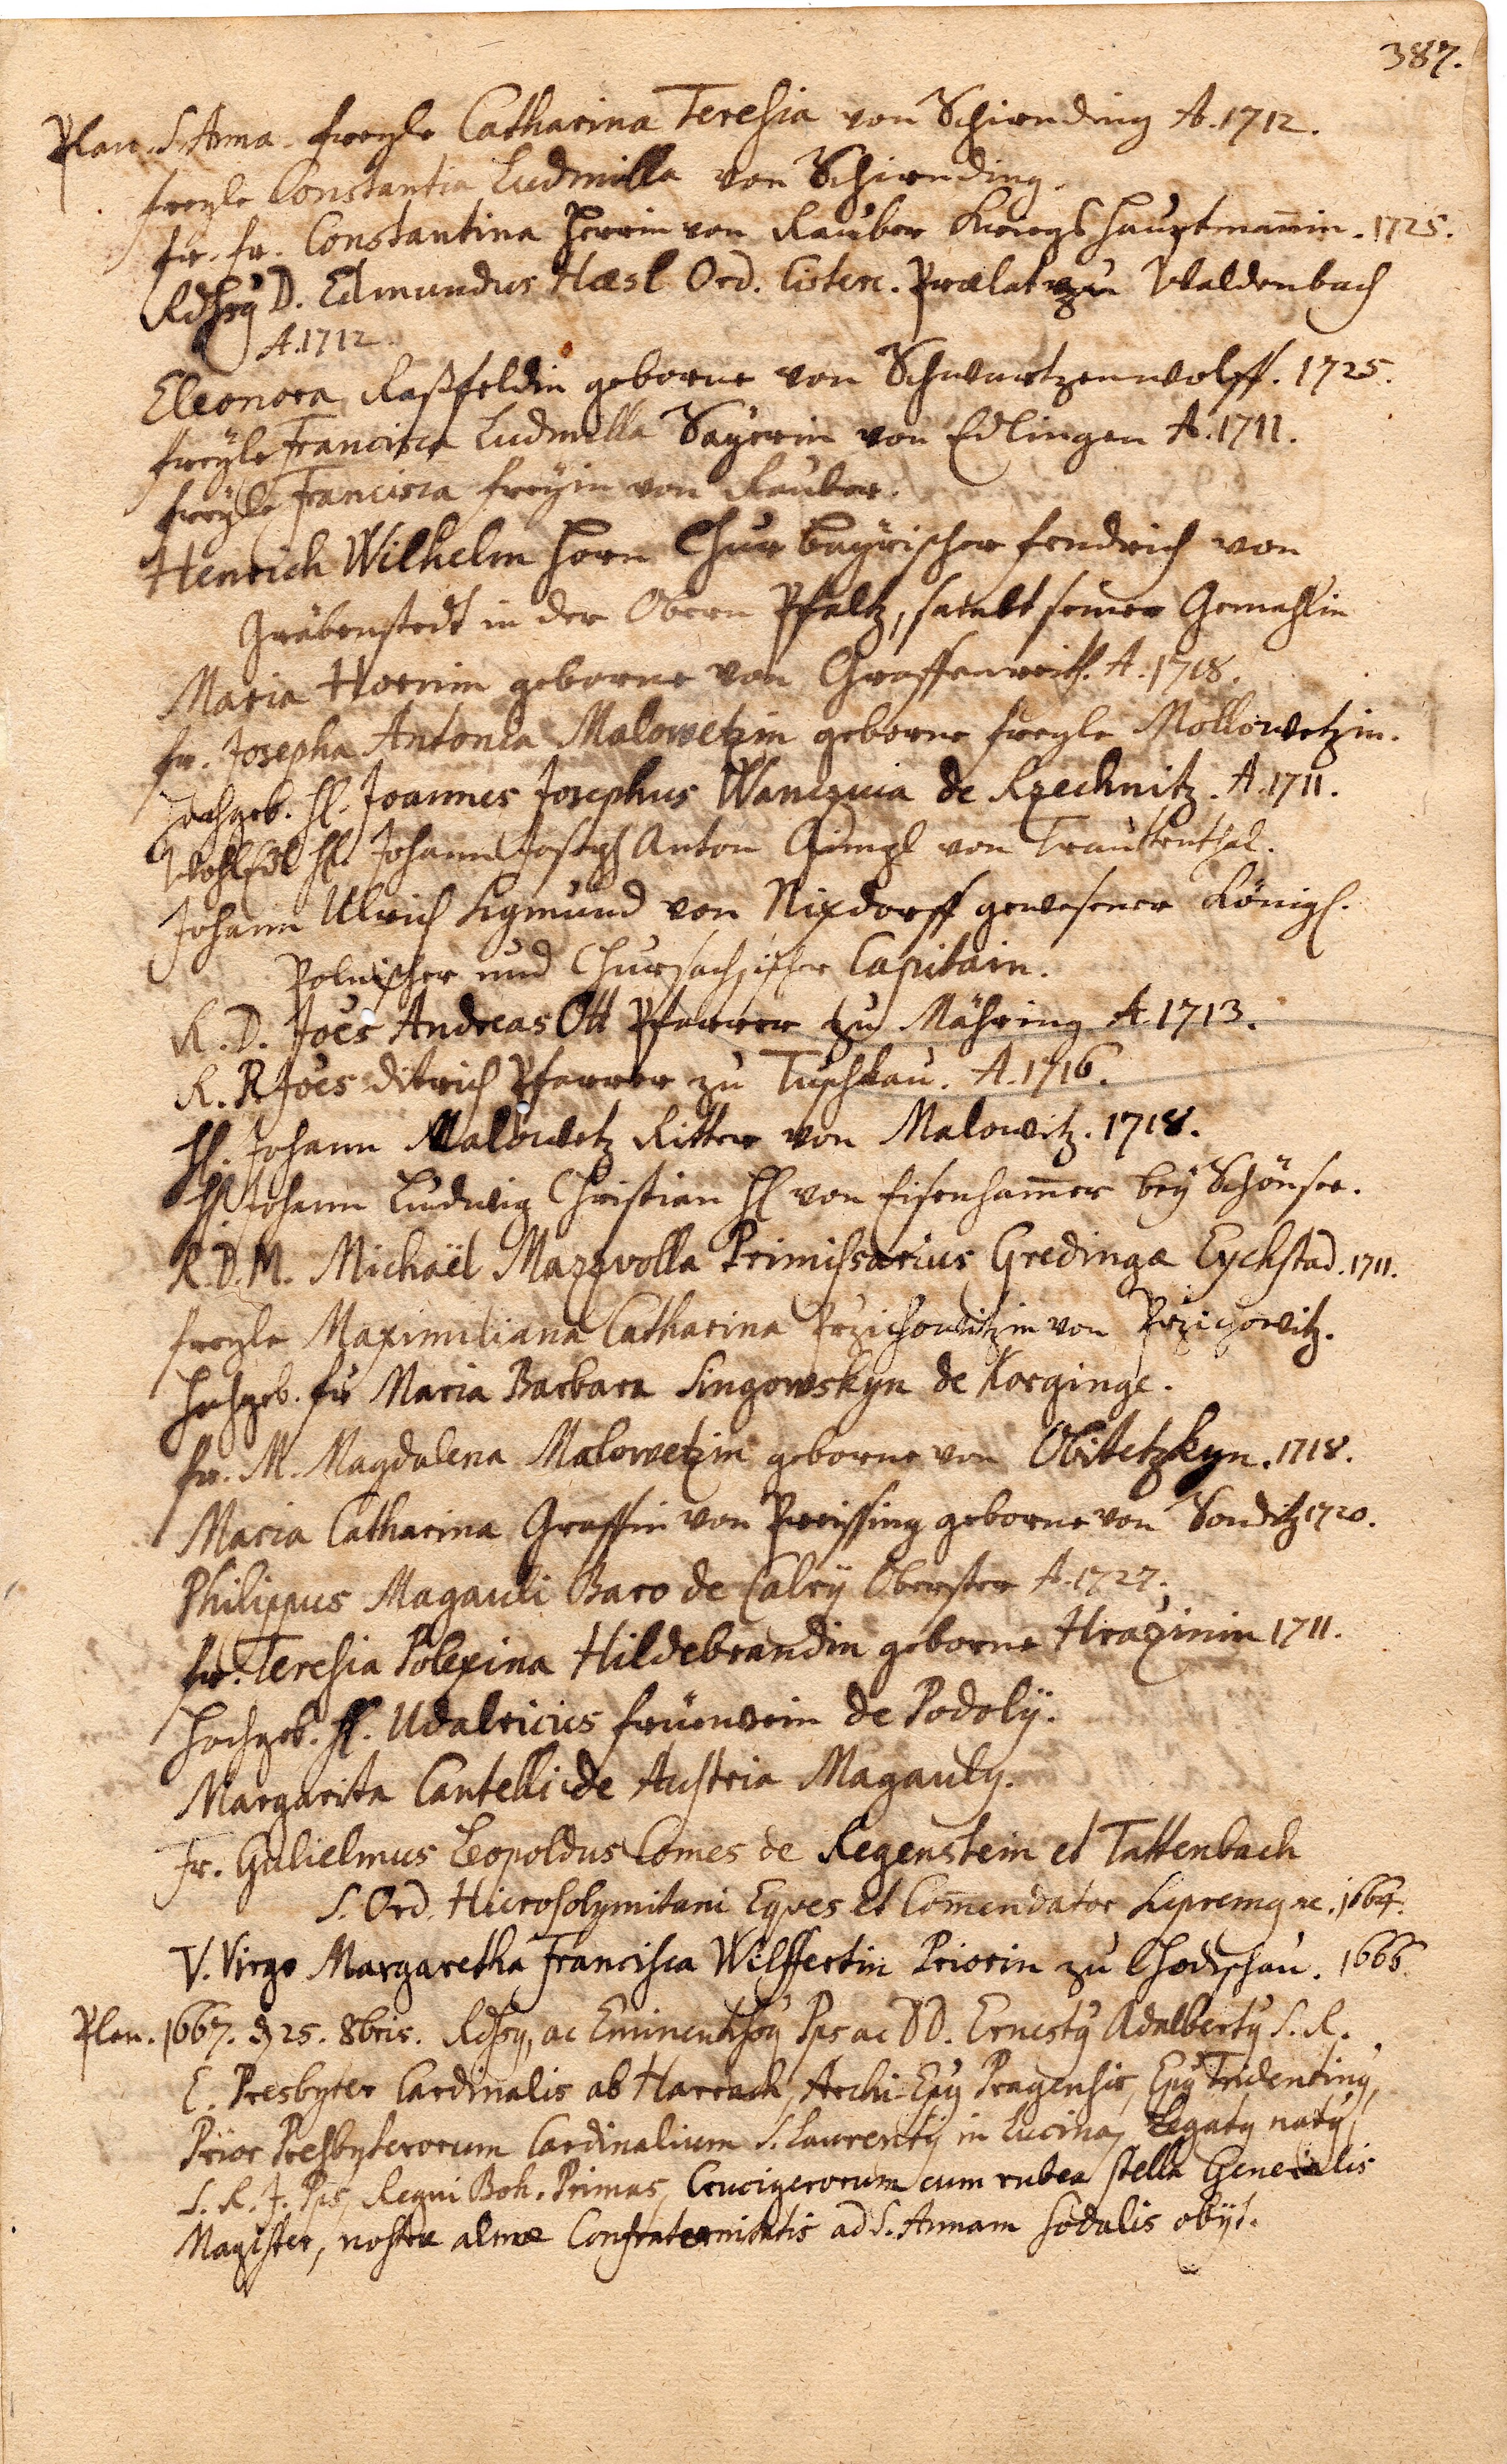 387.
Plan. S. Anna. freyle Catharina Teresia von Schirnding A. 1712.
freyle Constantia Ludmilla von Schirnding.
fr. fr. Constantina Herrin von Rauber Kriegs Hauptmanin. 1725.
D. Edmundus Hæsl Ord. Cisterc. Prælat zu Waldenbach
A. 1712.
Eleonora Raßfeldin geborne von Schwartzenwolff. 1725.
freyle Francisca Ludmilla Sayerin von Edlingen A. 1711.
freyle Francisca freyin von Rauber.
Henrich Wilhelm Horn Chur bayrischer fendrich von
Gräbenstedt in der Obern Pfaltz, sambt seiner Gemahlin
Maria Hornin geborne von Graffenreith. A. 1718.
fr. Josepha Antonia Malowetzin geborne freyle Mallowetzin.
Hochgeb. H. Joannes Josephus Wanczura de Rzechnitz. A. 1711.
WohlEdl H. Johann Joseph Anton Gimpl von Trautenthal.
Johann Ulrich Sigmund von Nixdorff gewesener Königl.
Polnischer und Chursachsischer Capitain.
R. D. Joes Andreas Ott Pfarrer zu Mähring A. 1713.
R. P. Joes Ditrich Pfarrer zu Tuschkau. A. 1716.
H. Johann Malowetz Ritter von Malowitz. 1718.
H. Johann Ludwig Christian H von Eisenhamer bey Schönsee.
R. D. M. Michaël Mazzvolla Primissarius Gredingæ Eychstad. 1711.
freyle Maximiliana Catharina Przichowitzin von Przichowitz.
Hochgeb. fr Maria Barbara Singowskyn de Korginge.
fr. M. Magdalena Malowetzin geborne von Obitetzkyn. 1718.
Maria Catharina Graffin von Preissing geborne von Sonditz 1720.
Philippus Magauli Baro de Calry Oberster A. 1727.
fr. Teresia Polexina Hildebrandin geborne Hrazinin 1711.
Hochgeb. H. Udalricius früewein de Podoly.
Margarita Cantelli de Austria Magauly.
Fr. Gulielmus Leopoldus Comes de Regenstein et Tattenbach
S. Ord. Hierosolymitani Eques et Comendator 1664.
V. Virgo Margaretha Francisca Wilffertin Priorin zu Chodischau. 1666.
Plan. 1667. d 25. 8bris. ac Pps ac DD. Ernestq Adalbertq S. R.
E. Presbyter Cardinalis ab Harrach, Archi-Epq Pragensis, Epq Tridentinq,
Prior Presbyterorum Cardinalium S. Laurentij in Lucina, Legatq natq,
S. R. J. Pps, Regni Boh. Primas, Crucigerorum cum rubea stella Generalis
Magister, nostræ almæ Confraternitatis ad S. Annam sodalis obijt.